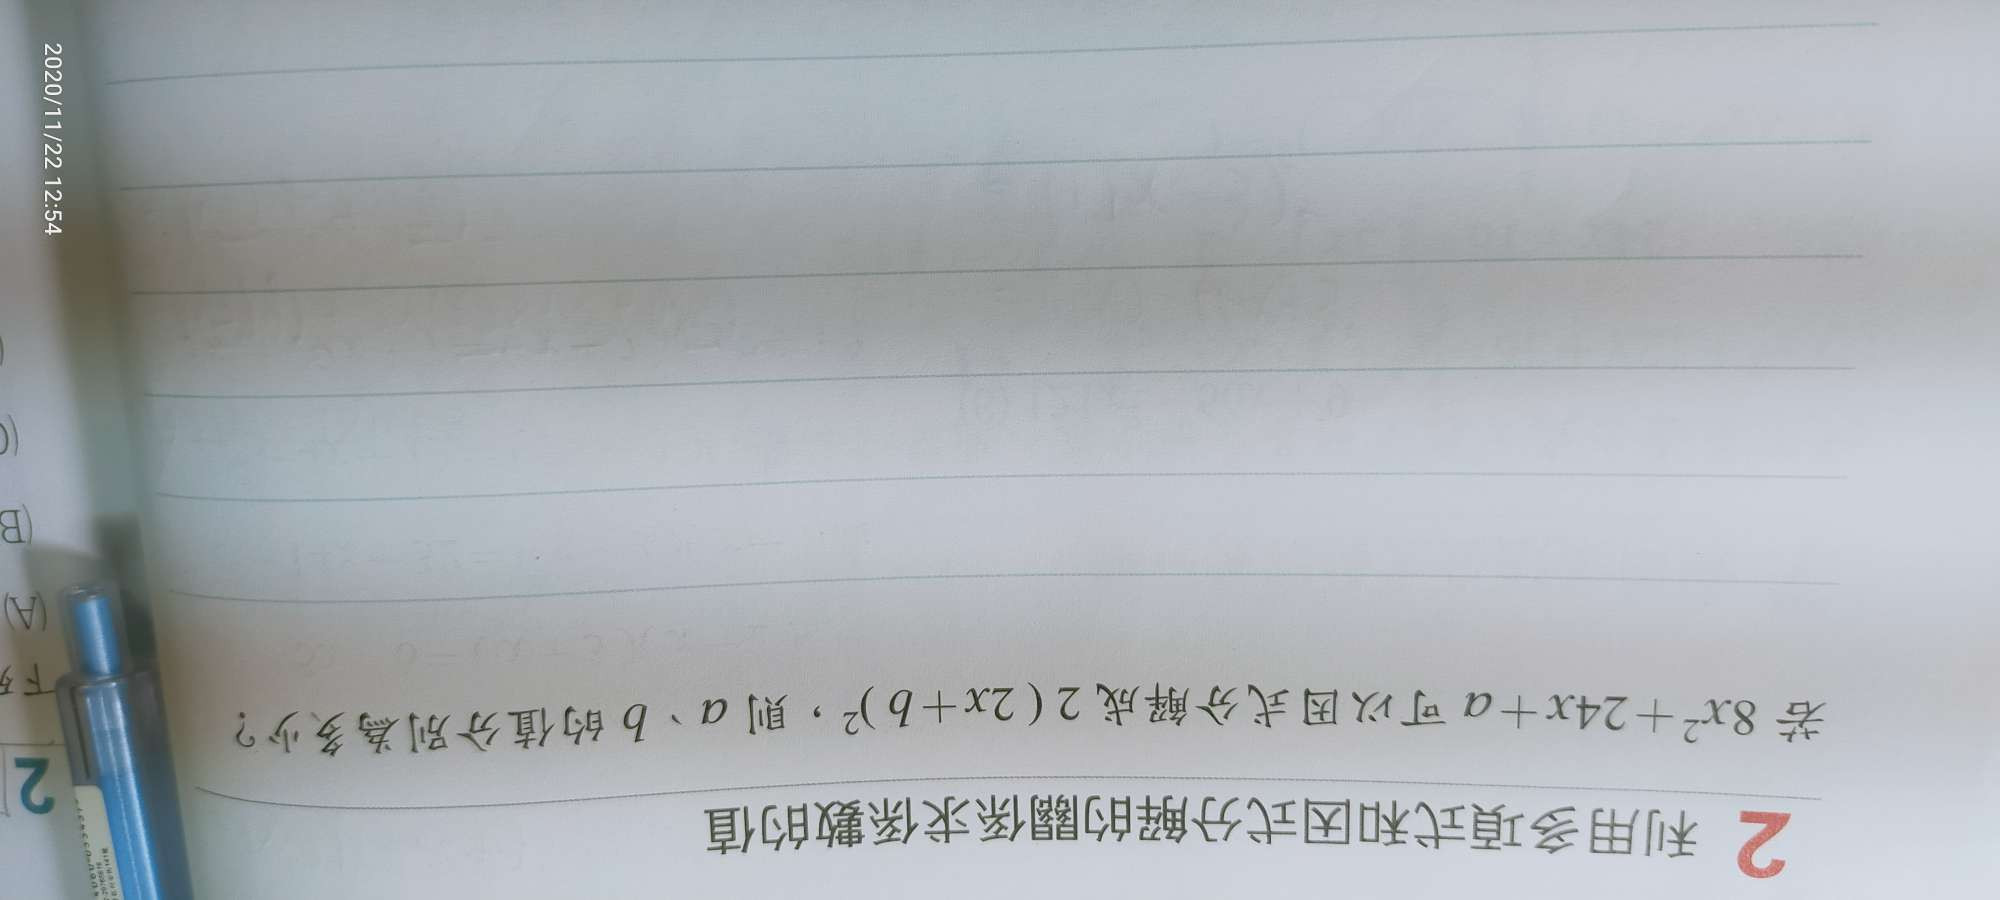 2 利用多項式和因式分解的關係求係數的值
若 8x²+24x+a 可以因式分解成 2(2x+b)²，則 a、b 的值分別為多少？
2
下列
(A)
(B
(C
(
2020/11/22 12:54